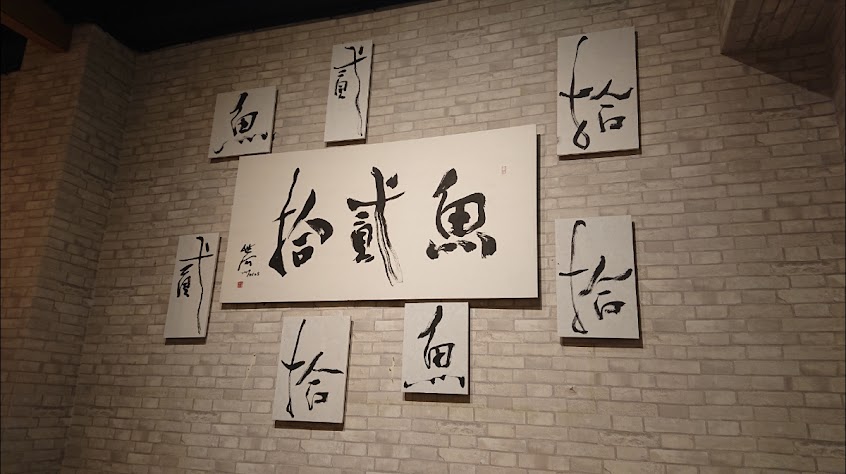 魚
貳
拾
魚貳拾
貳
拾
拾
魚